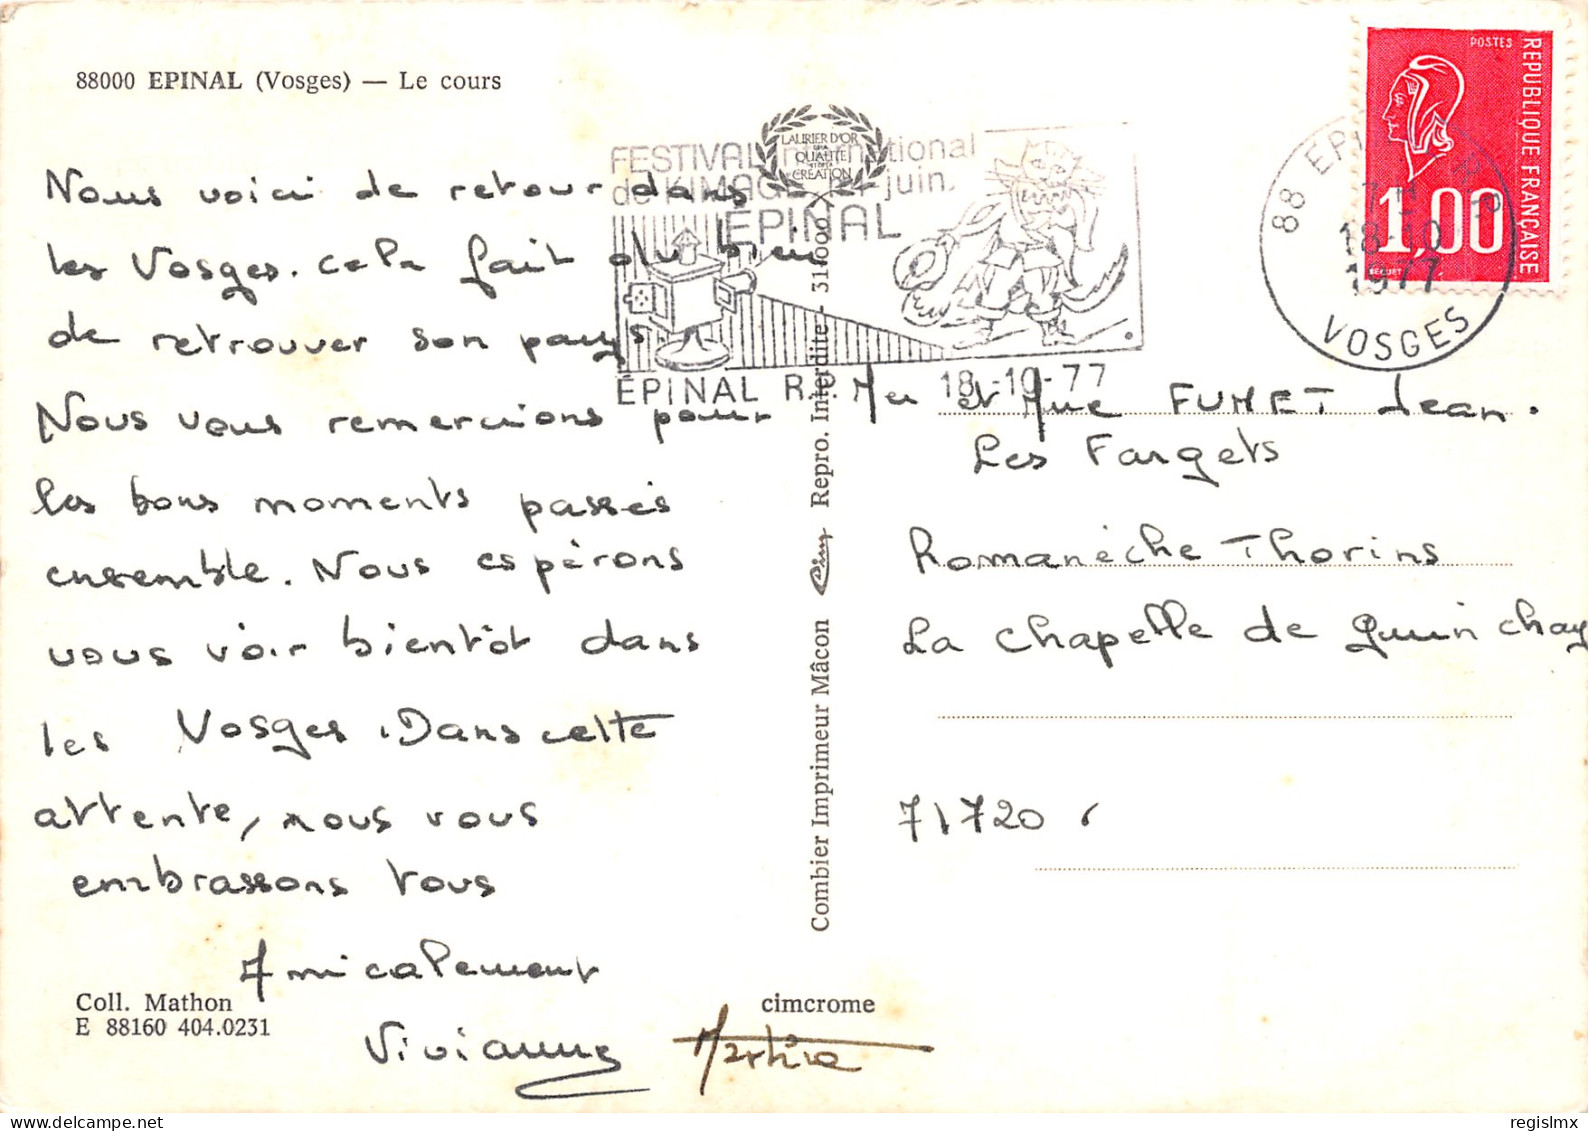 88000 EPINAL (Vosges) — Le cours
Nous voici de retour dans
les Vosges. cela fait du bien
de retrouver son pays.
Nous vous remercions pour
les bons moments passés
ensemble. Nous espérons
vous voir bientôt dans
les Vosges. Dans cette
attente, nous vous
embrassons tous
Amicalement
Vivianne Martine
Coll. Mathon
E 88160 404.0231
cimcrome
LAURIER D'OR
DE LA
QUALITÉ
ET DE LA
CRÉATION
Combier Imprimeur Mâcon Cim Repro. Interdite - 315000
FESTIVAL international
de l'IMAGE juin.
ÉPINAL
ÉPINAL R.P. 18-10-77
POSTES
REPUBLIQUE FRANÇAISE
1,00
BEQUET
88 EPINAL R.P.
18-10
1977
VOSGES
Mr et Mme FUMET Jean.
Les Fargets
Romanèche Thorins
La Chapelle de Guinchay
71720
regislmx